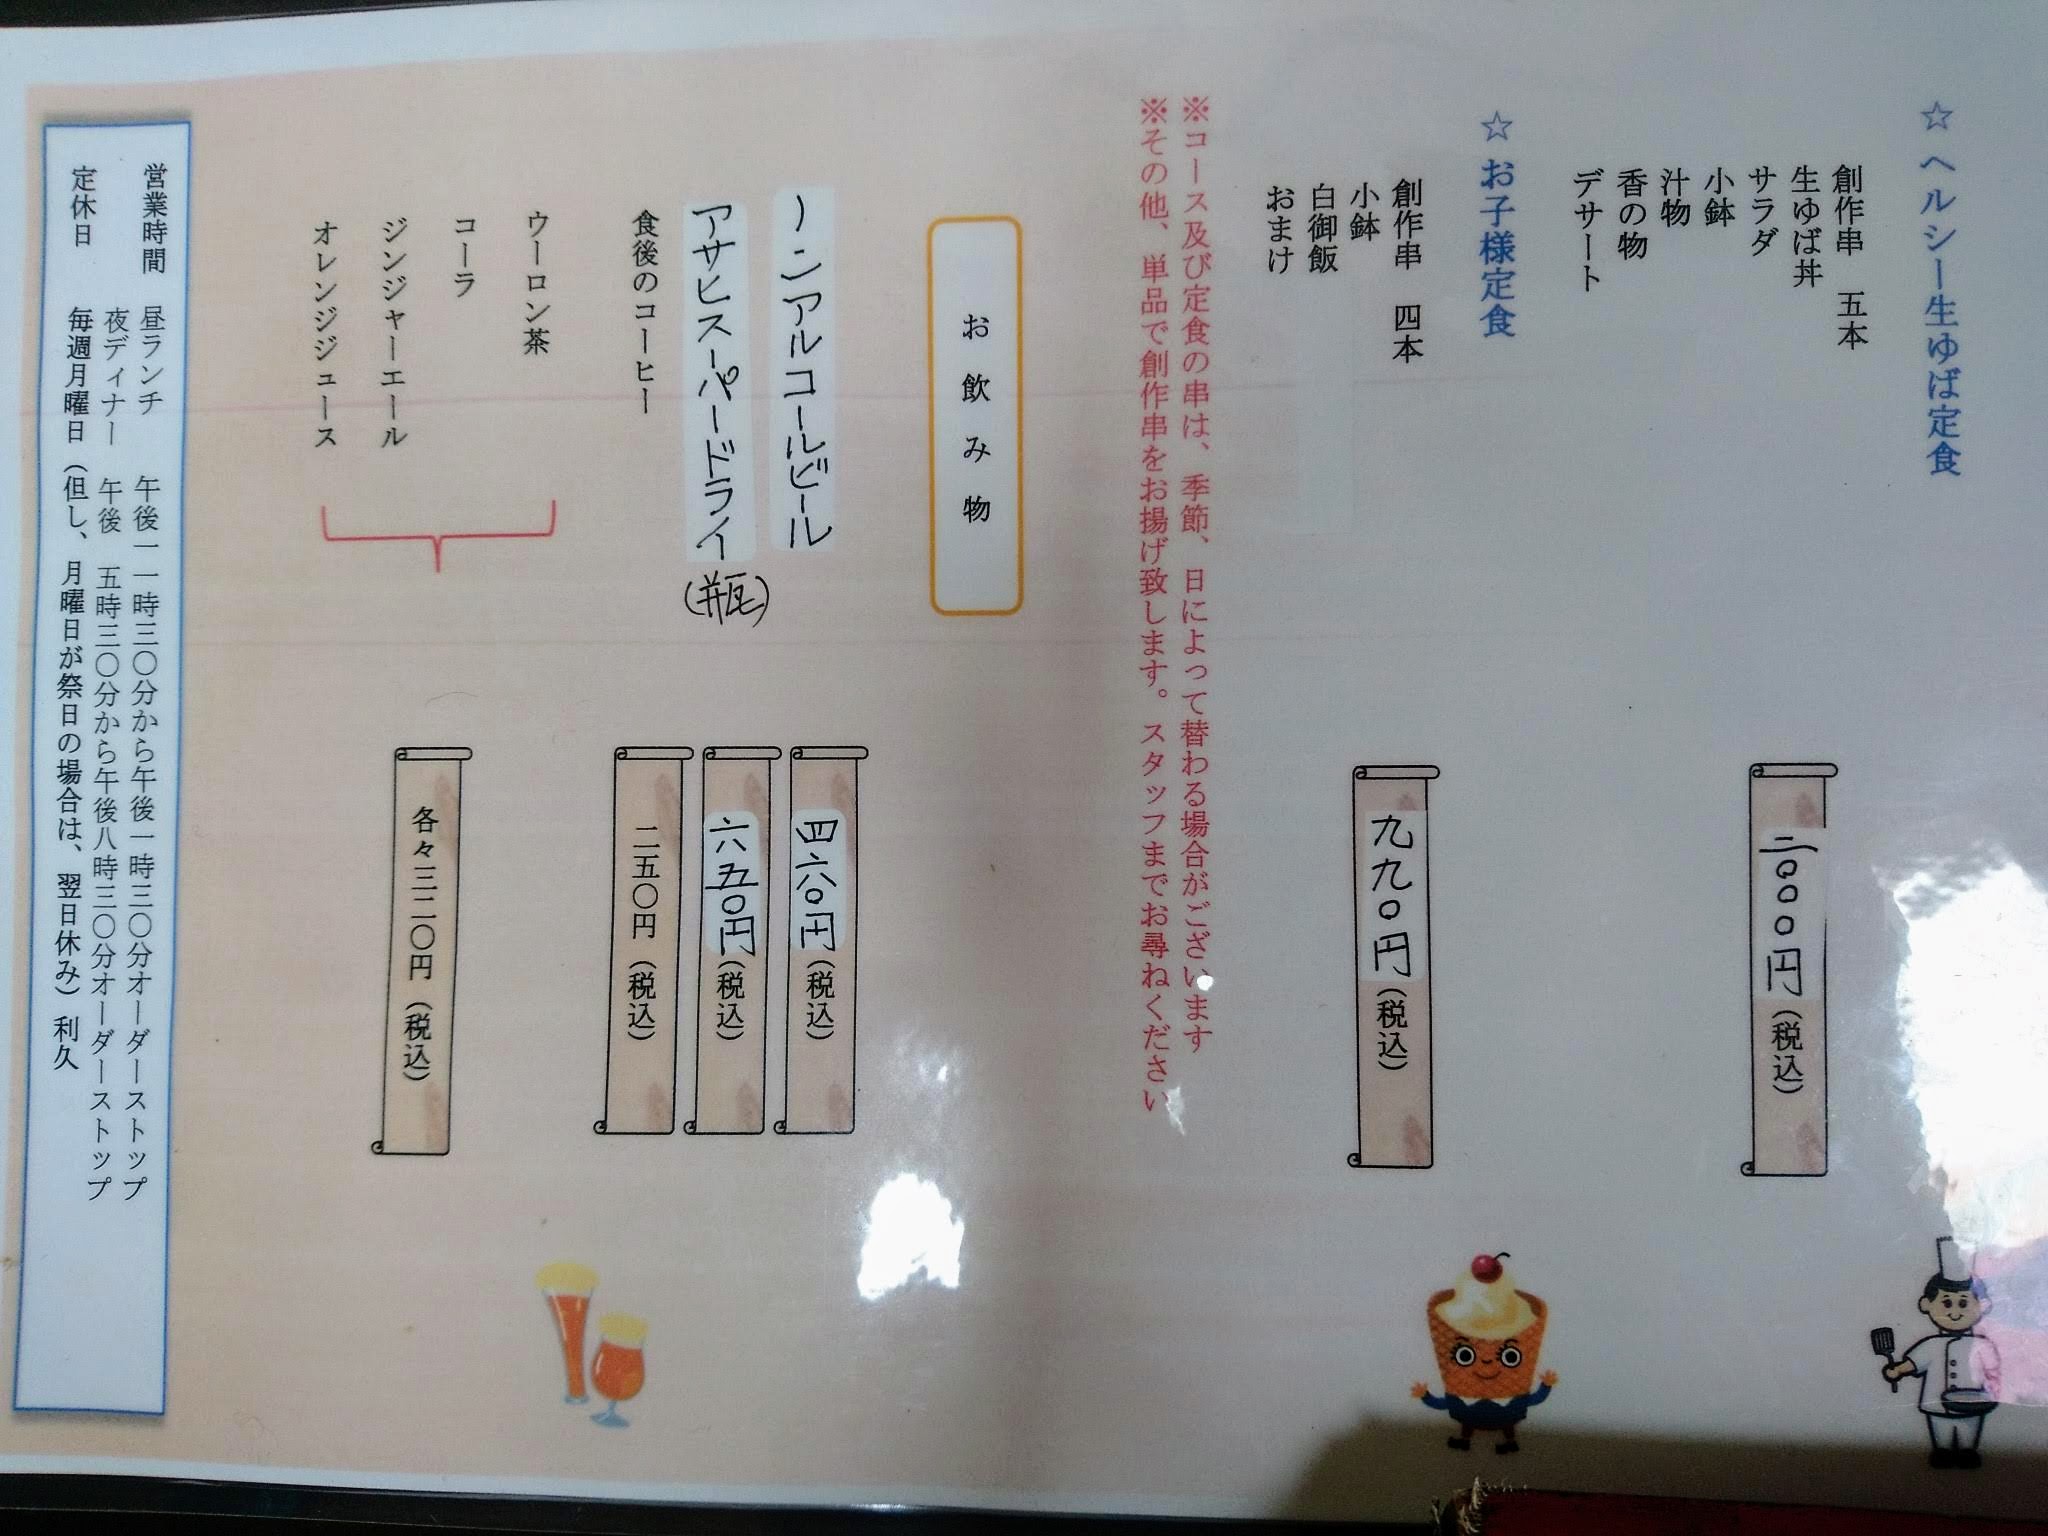 ☆ヘルシー生ゆば定食
創作串 五本
生ゆば丼
サラダ
小鉢
汁物
香の物
デサート
二〇〇〇円(税込)
☆お子様定食
創作串 四本
小鉢
白御飯
おまけ
九九〇円(税込)
※コース及び定食の串は、季節、日によって替わる場合がございます
※その他、単品で創作串をお揚げ致します。スタッフまでお尋ねください
お飲み物
ノンアルコールビール
四六〇円(税込)
アサヒスーパードライ(瓶)
六五〇円(税込)
食後のコーヒー
二五〇円(税込)
ウーロン茶
コーラ
ジンジャーエール
オレンジジュース
各々三二〇円(税込)
営業時間 昼ランチ 午後一一時三〇分から午後一時三〇分オーダーストップ
夜ディナー 午後 五時三〇分から午後八時三〇分オーダーストップ
定休日 毎週月曜日(但し、月曜日が祭日の場合は、翌日休み)利久